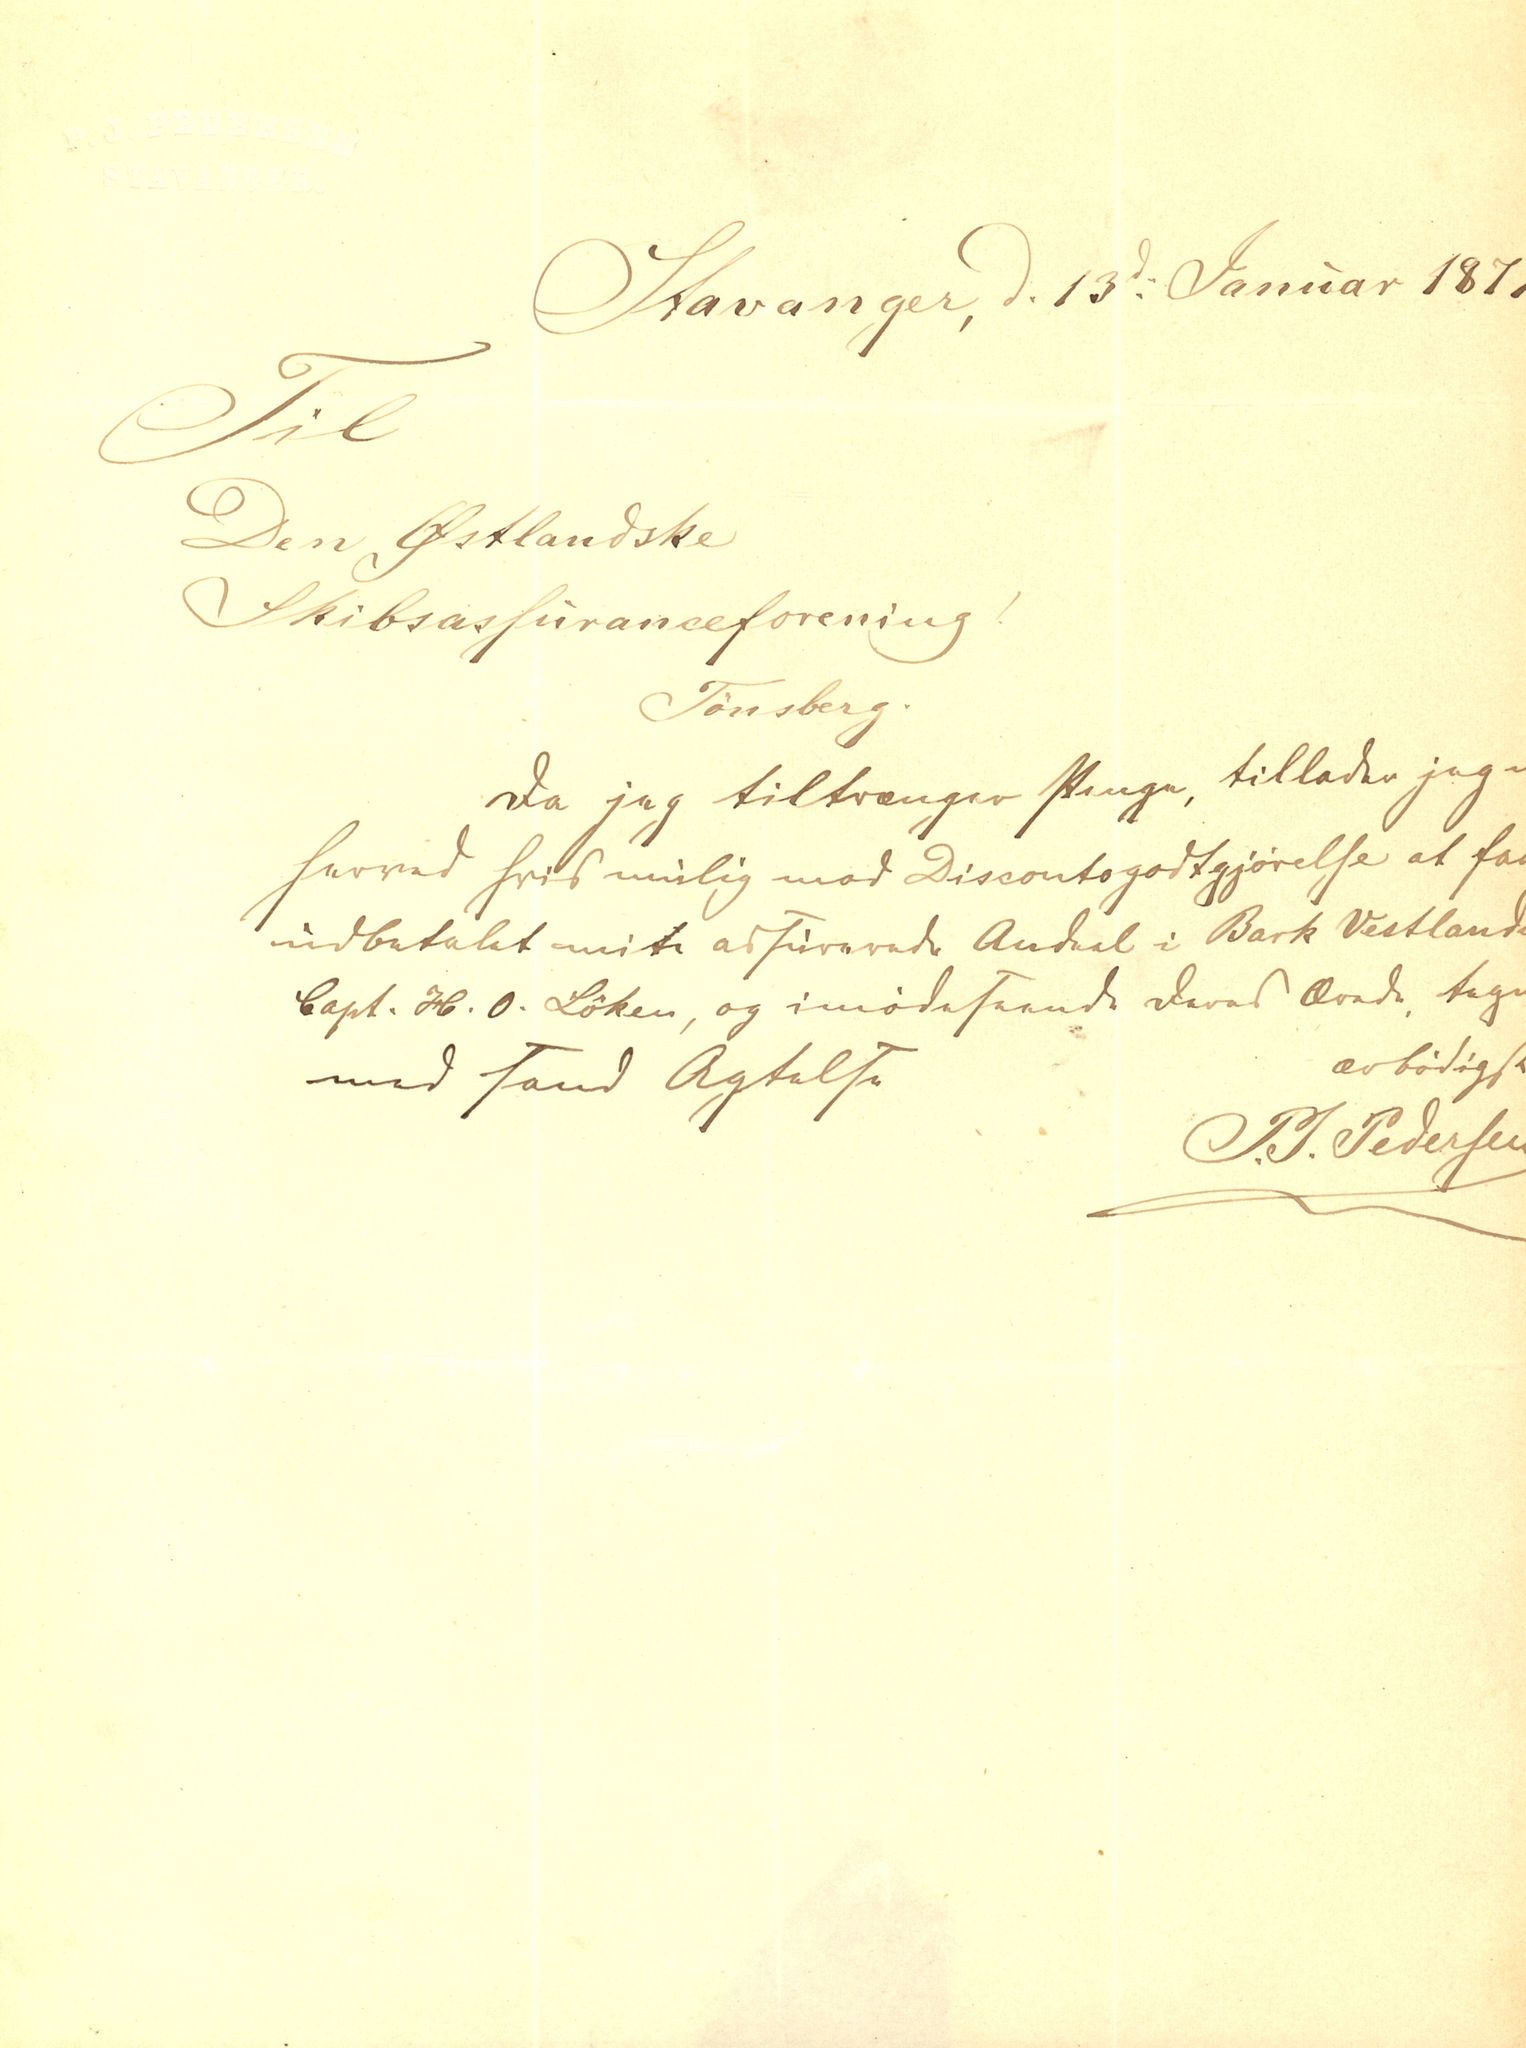 P. J. PEDERSEN
STAVANGER.
Stavanger, d. 13d: Januar 1871
Til
Den Østlandske
Skibsassuranceforening!
Tönsberg.
Da jeg tiltrænger Penge, tillader jeg
herved hvis mulig mod Discontogodtgjörelse at faa
udbetalet mit assurerede Andeel i Bark Vestland
Capt. H. O. Löken, og imödeseende Deres Ærede, tegn
med sand Agtelse
ærbödigst
P. J. Pedersen